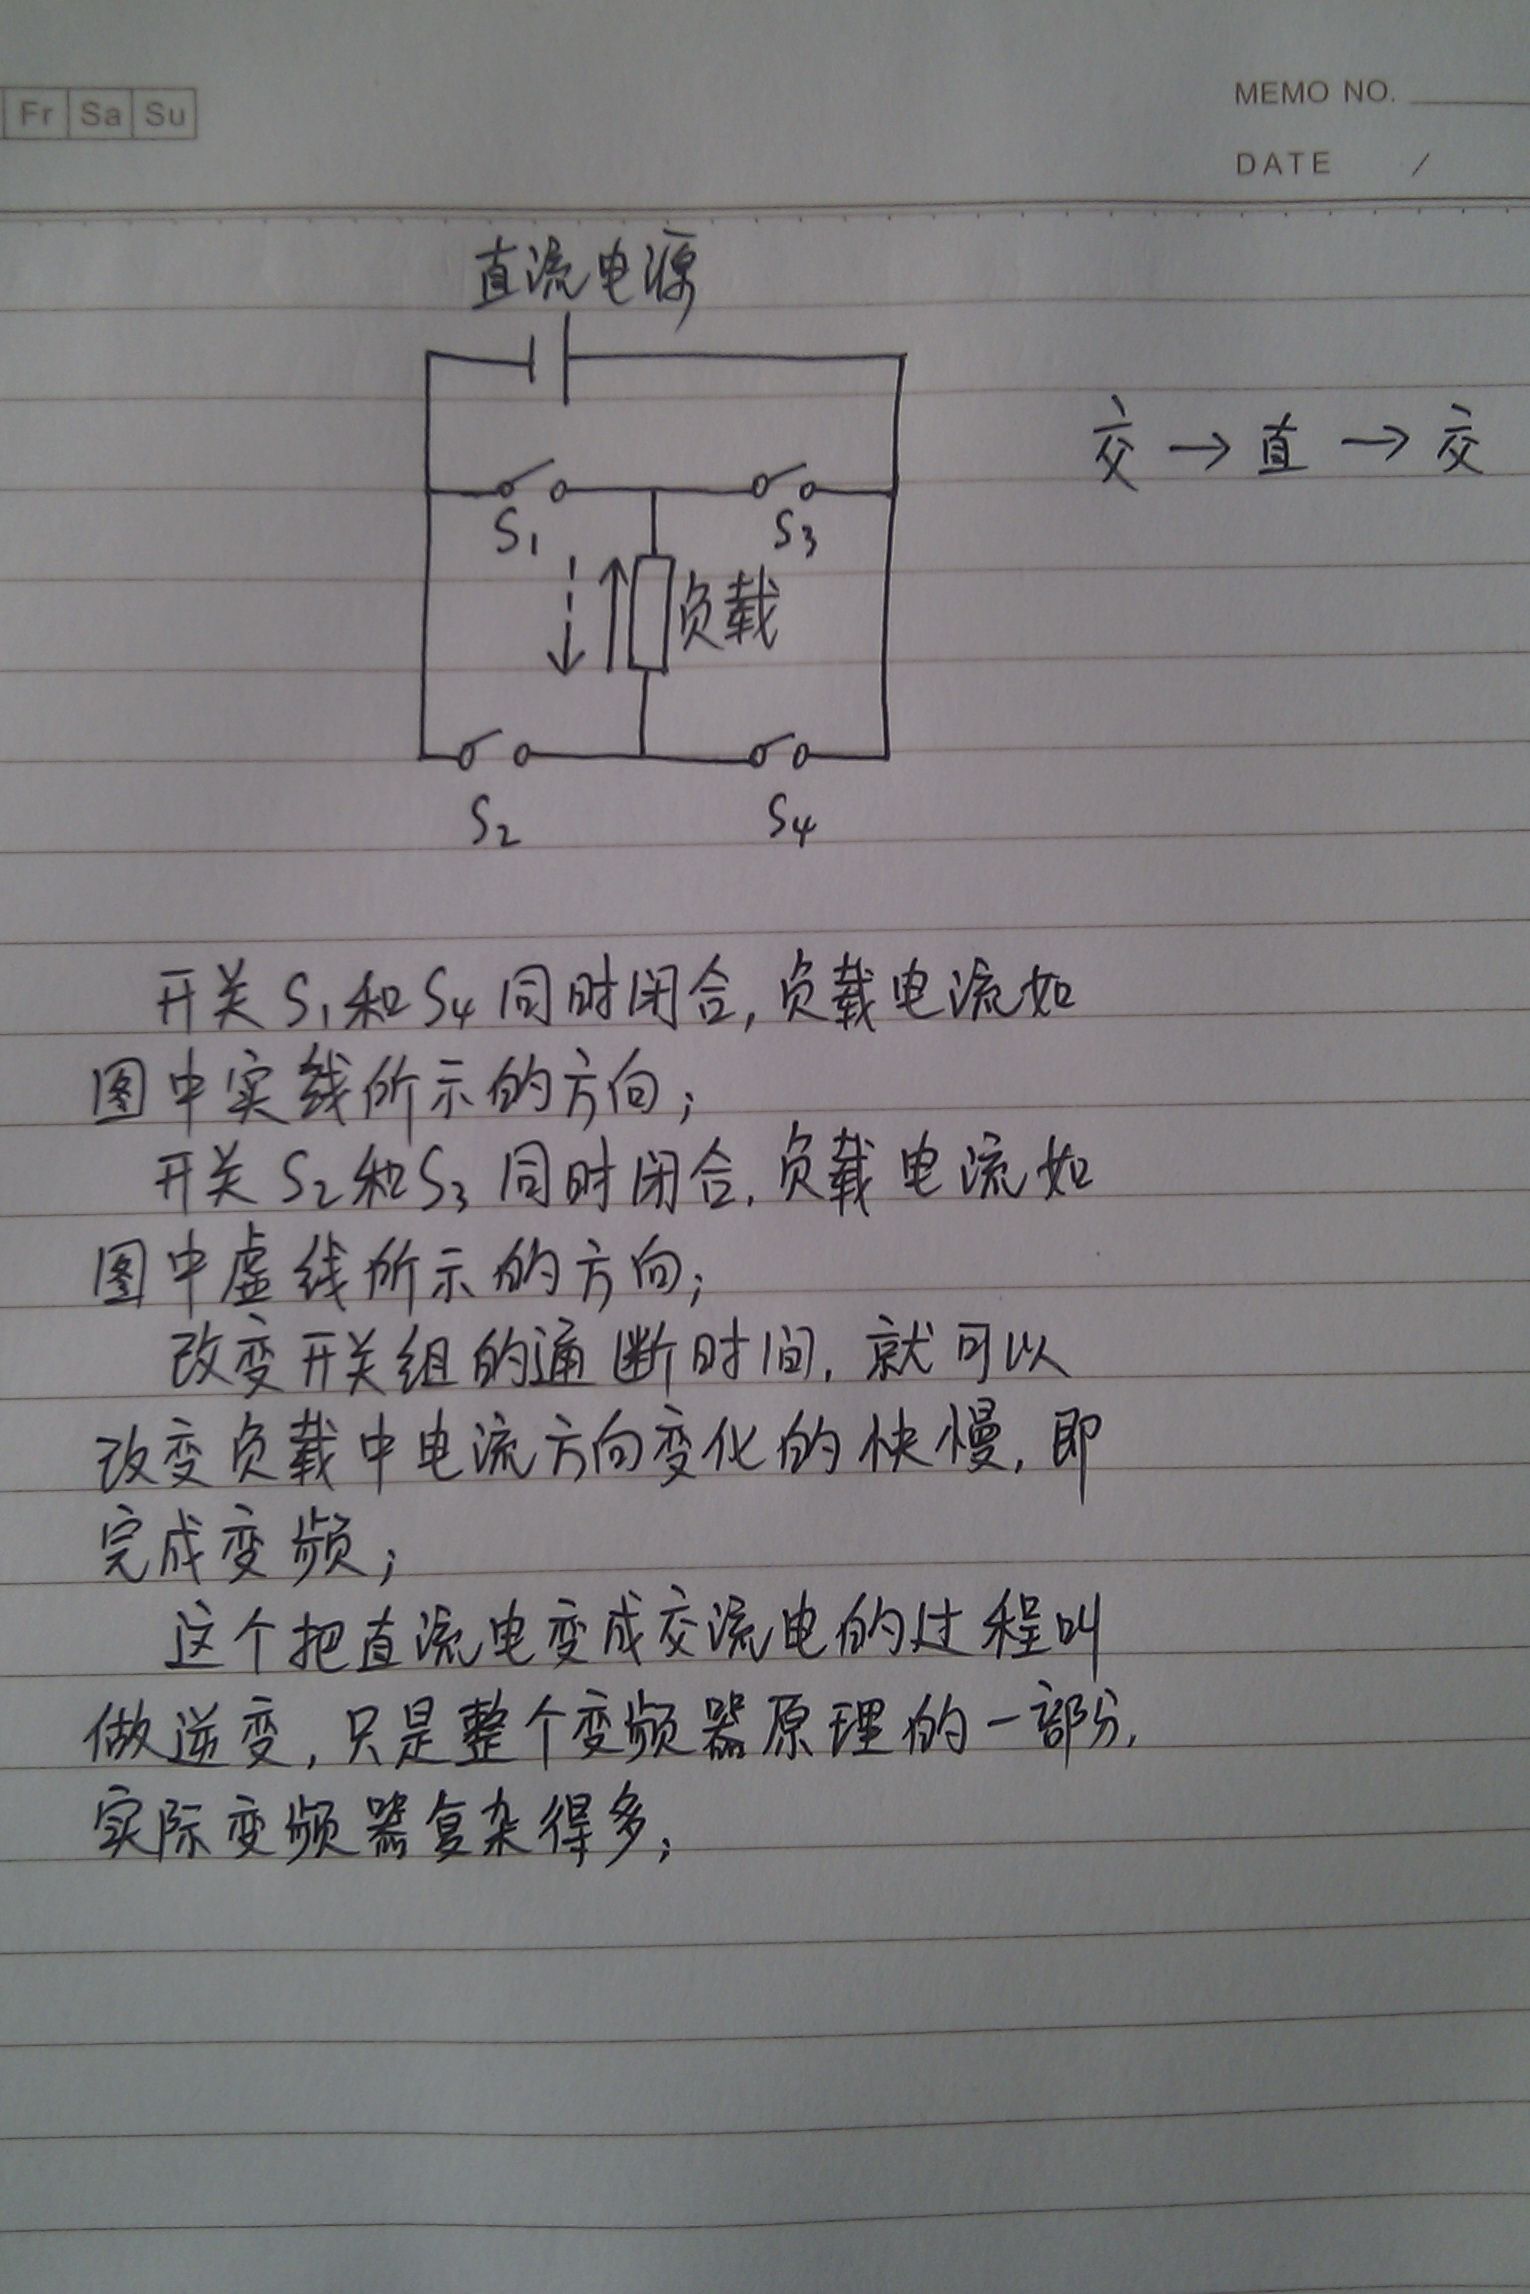 Fr Sa Su
MEMO NO.
DATE /
直流电源
交→直→交
S1 S3
负载
S2 S4
开关S1和S4同时闭合,负载电流如
图中实线所示的方向;
开关S2和S3同时闭合,负载电流如
图中虚线所示的方向;
改变开关组的通断时间,就可以
改变负载中电流方向变化的快慢,即
完成变频;
这个把直流电变成交流电的过程叫
做逆变,只是整个变频器原理的一部分,
实际变频器复杂得多;